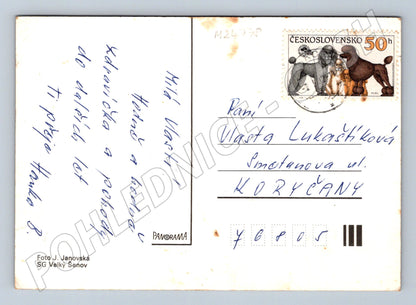 M24 458
ČESKOSLOVENSKO 50h
Milá Vlasto
Hodně a hodně
zdravíčka a pohody
do dalších let
ti přeje Hanka 8
Paní
Vlasta Lukaštíková
Smetanova ul.
KORYČANY
76805
PANORAMA
Foto J. Janovská
SG Velký Šenov
POHLEDNICE